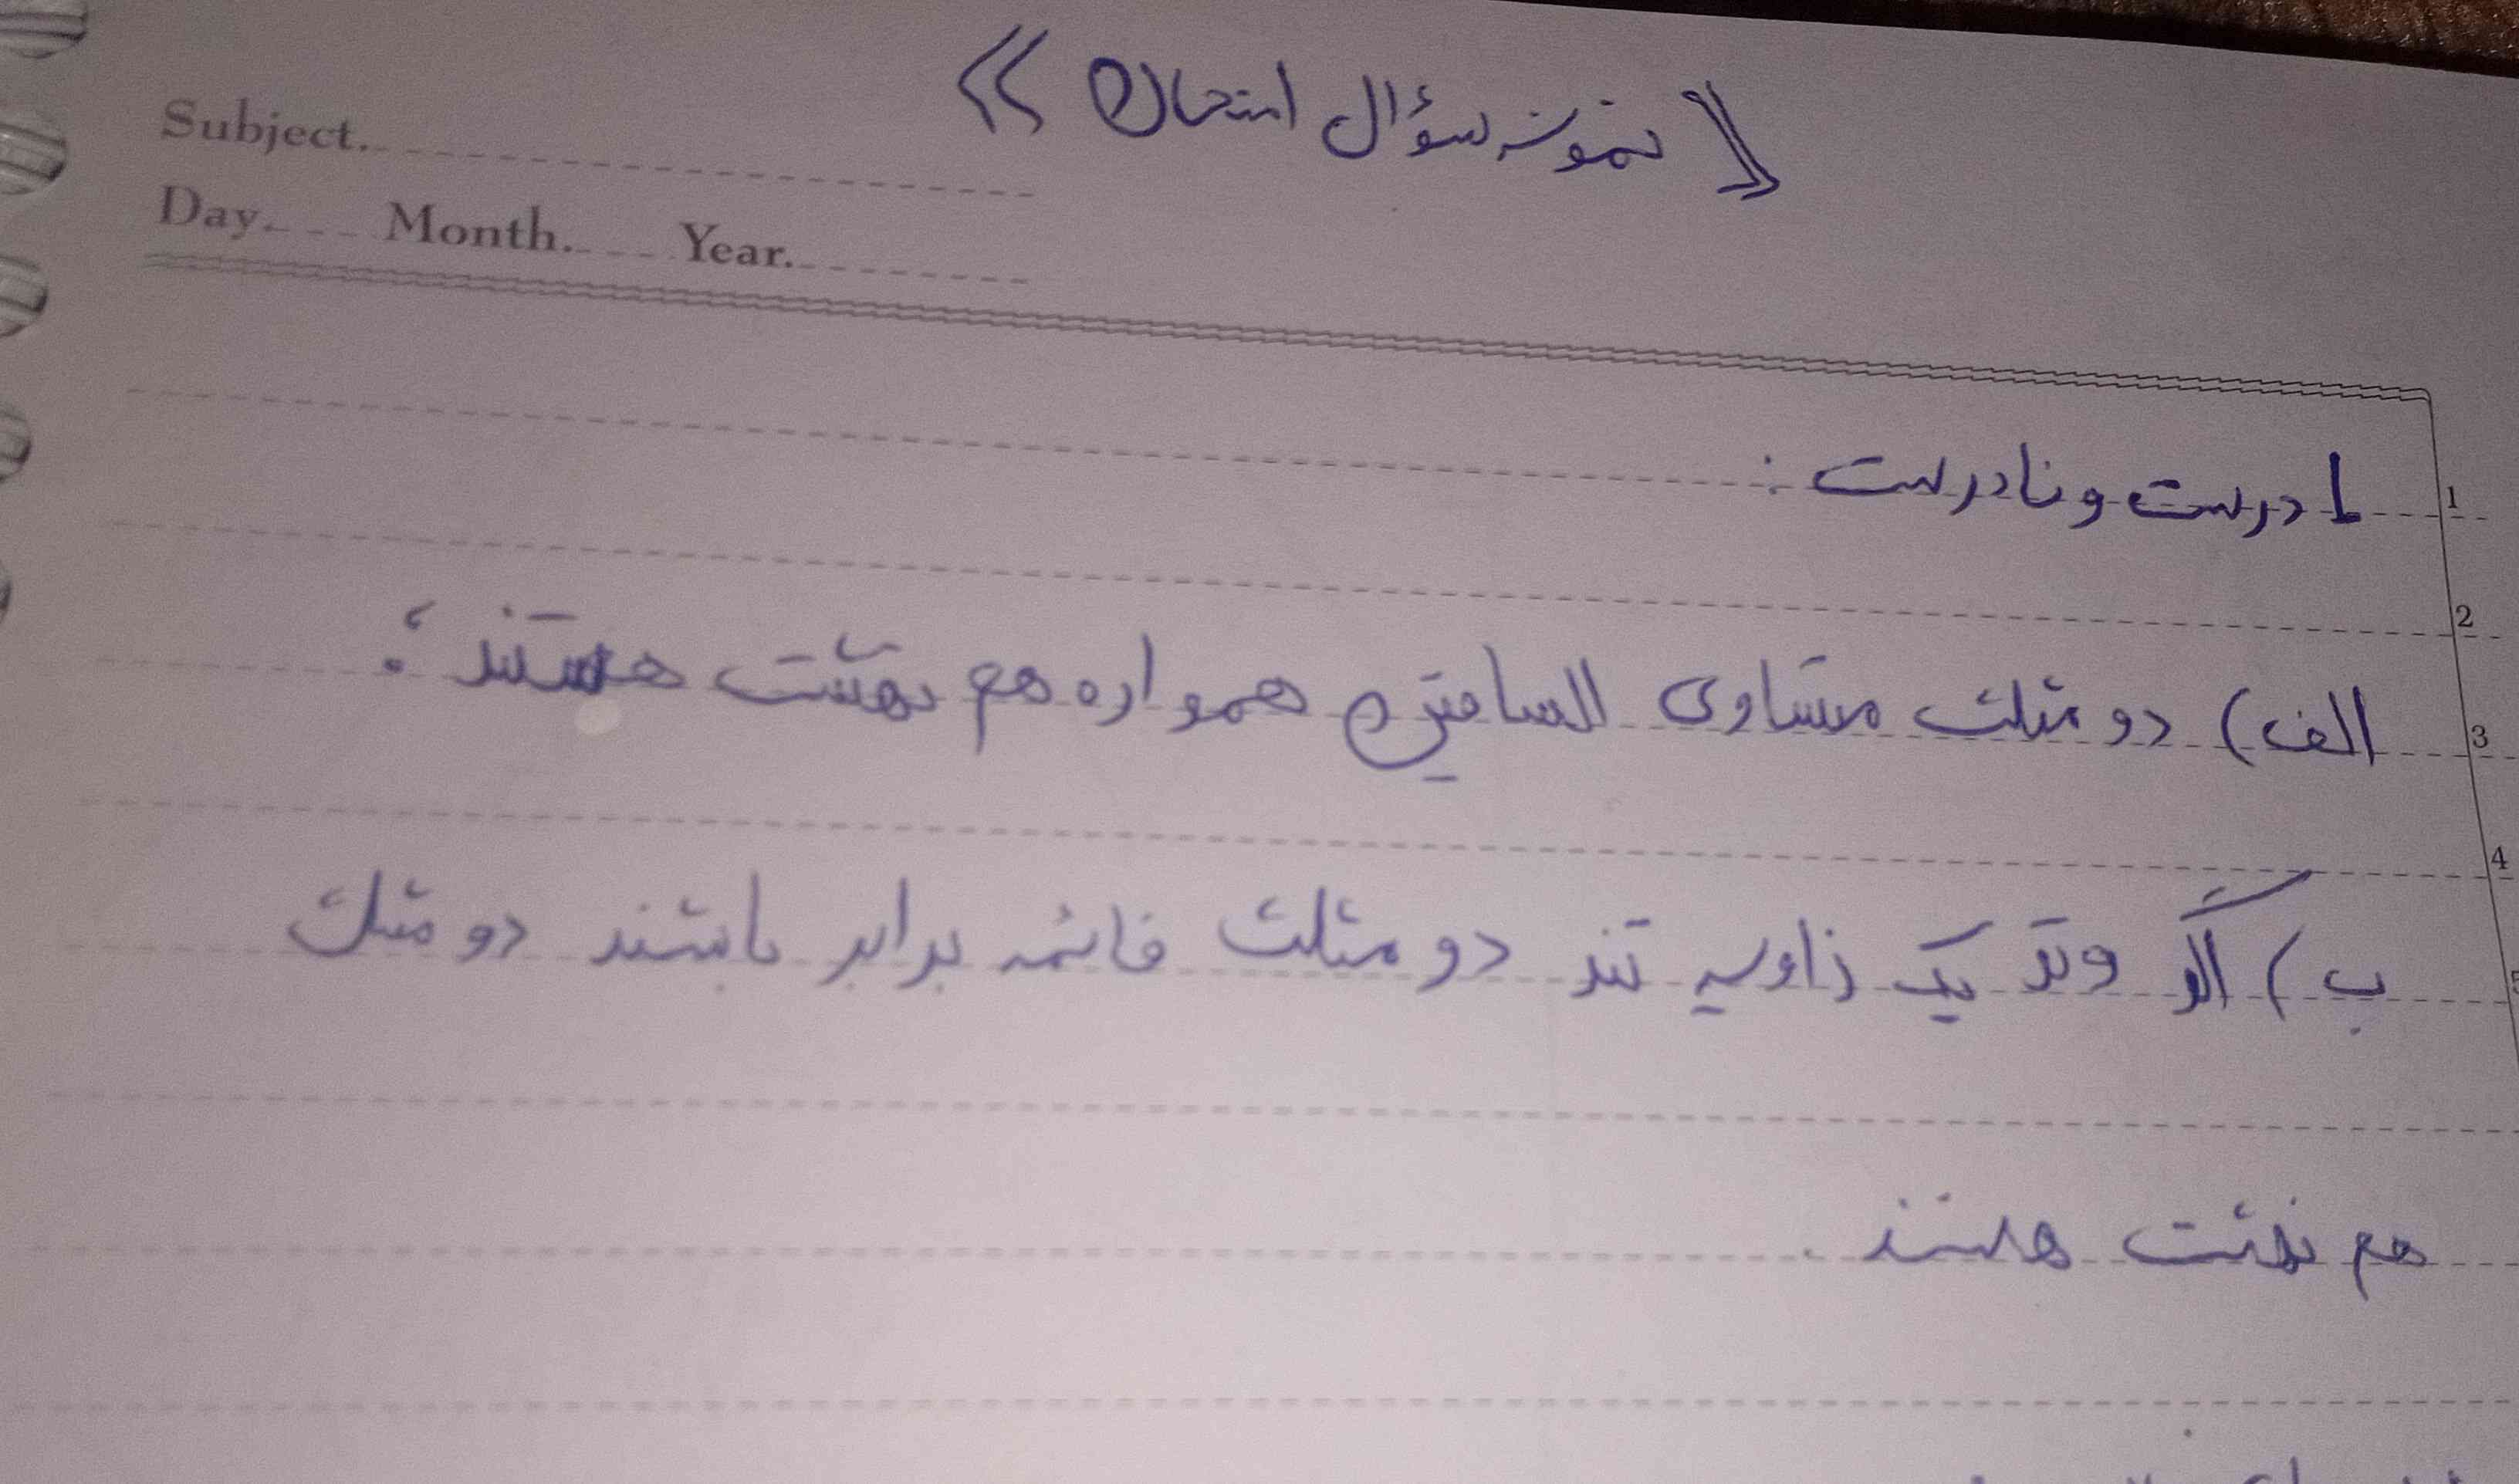 « نمونه سؤال امتحان »
Subject.
Day. Month. Year.
1 1 درست و نادرست :
2
3 الف) دو مثلث متساوی الساقین همواره هم نهشت هستند ؛
4
5 ب) اگر وتر یک زاویه تند دو مثلث قائمه برابر باشند دو مثلث
هم نهشت هستند .